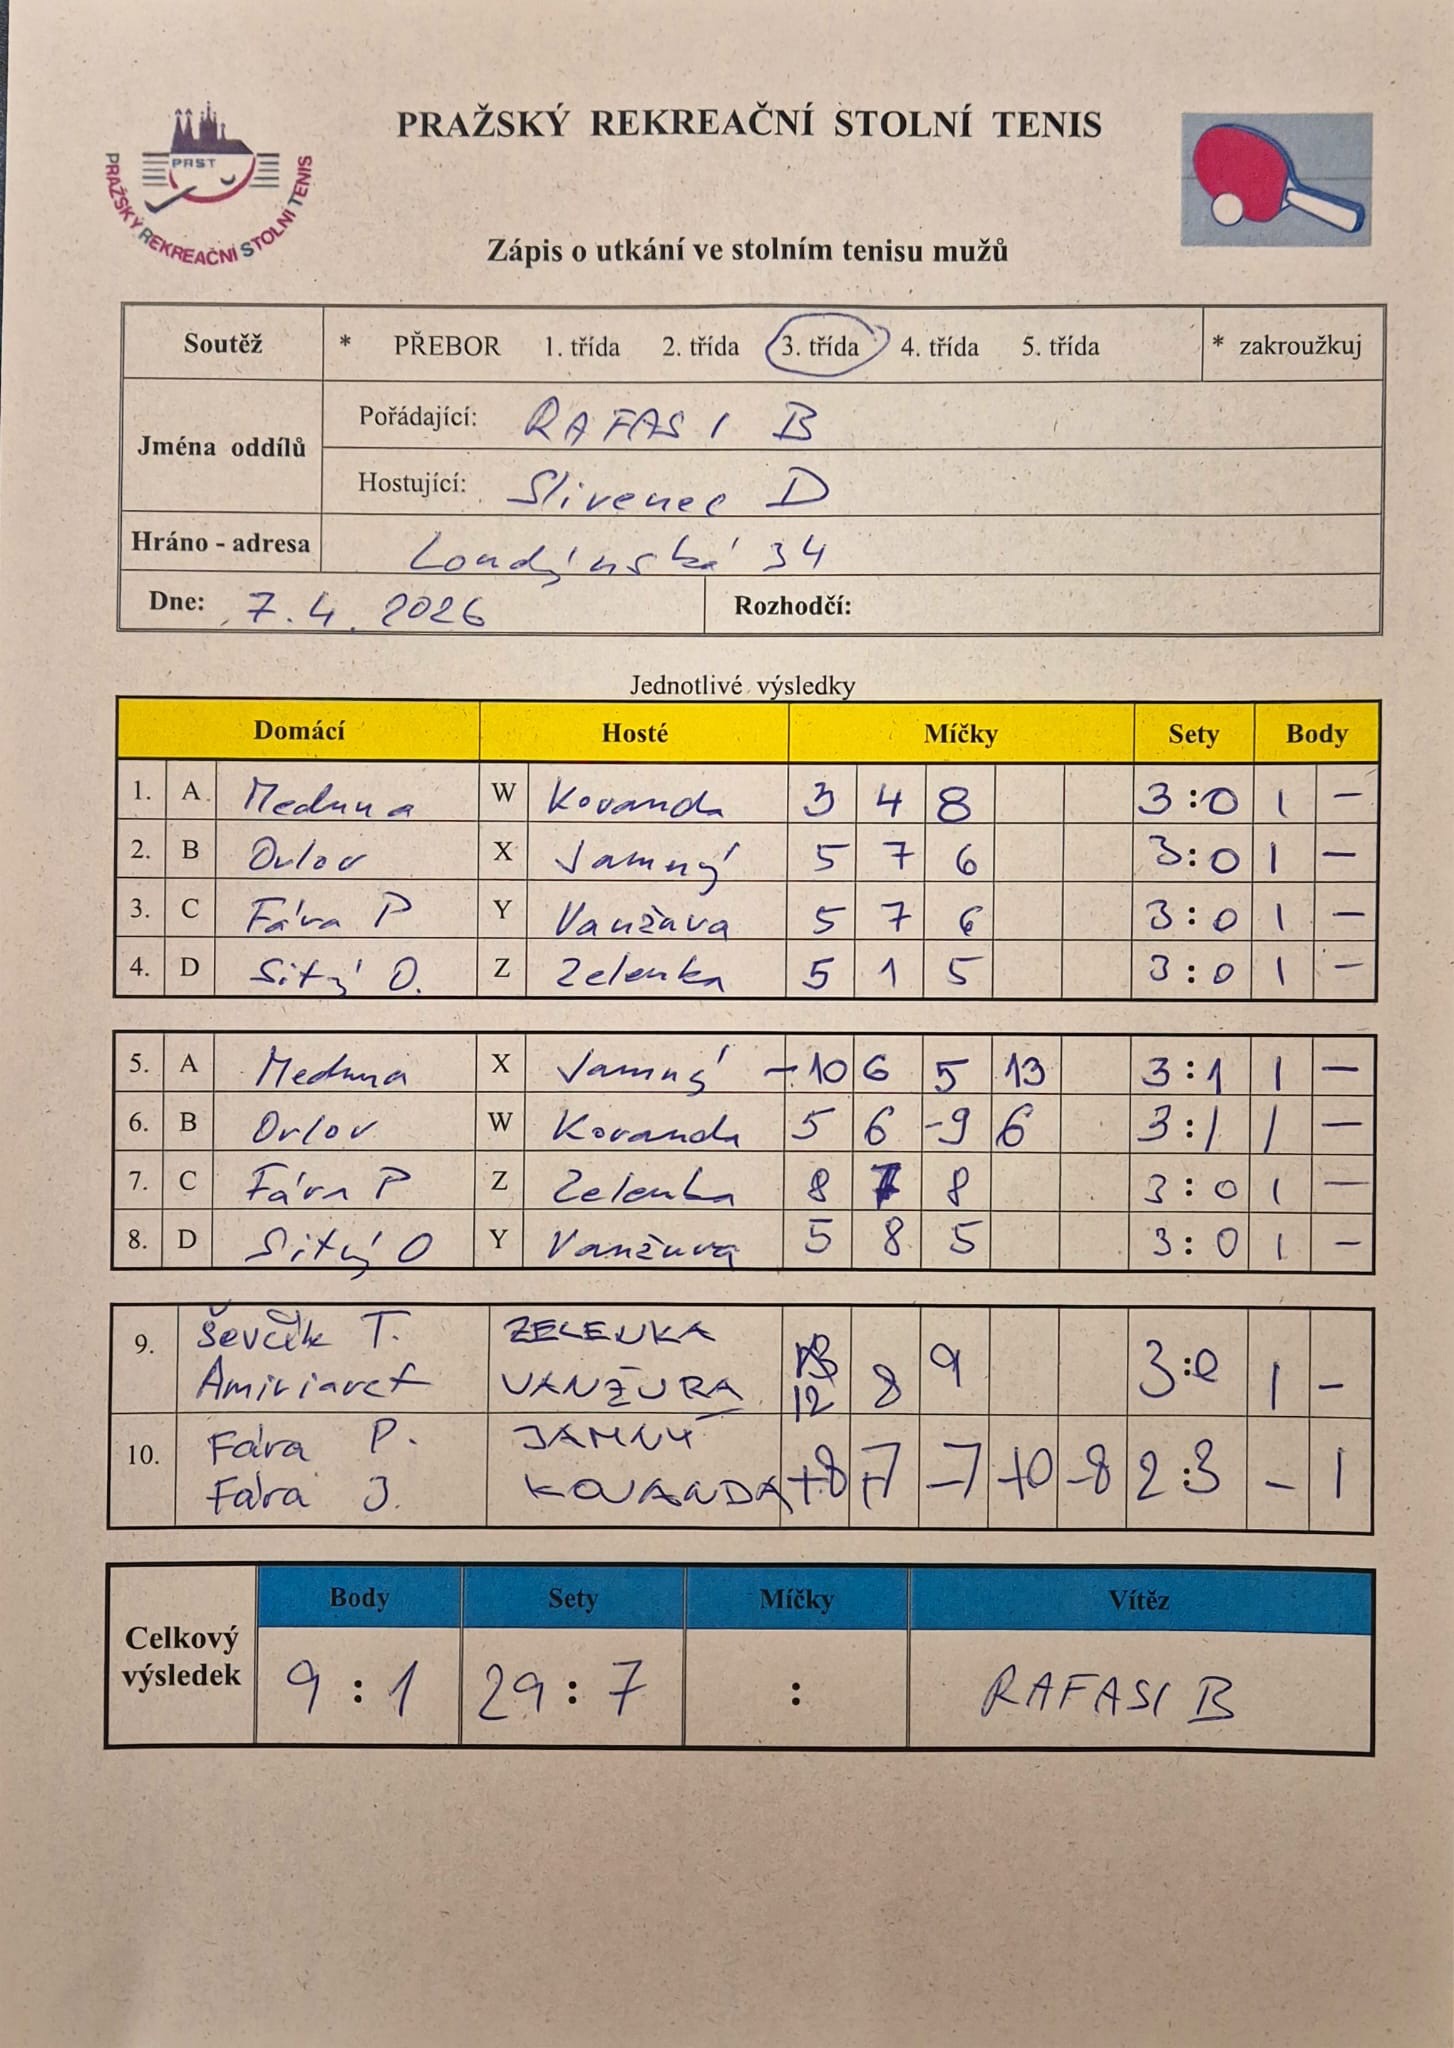 PRAŽSKÝ REKREAČNÍ STOLNÍ TENIS
PRST
PRAŽSKÝ REKREAČNÍ STOLNÍ TENIS
Zápis o utkání ve stolním tenisu mužů
Soutěž * PŘEBOR 1. třída 2. třída 3. třída 4. třída 5. třída * zakroužkuj
Jména oddílů
Pořádající: RAFASI B
Hostující: Slivenec D
Hráno - adresa Londýnská 34
Dne: 7.4.2026 Rozhodčí:
Jednotlivé výsledky
Domácí Hosté Míčky Sety Body
1. A Meduna W Kovanda 3 4 8 3:0 1 -
2. B Orlov X Jamný 5 7 6 3:0 1 -
3. C Fára P Y Vanžura 5 7 6 3:0 1 -
4. D Sitý O. Z Zelenka 5 1 5 3:0 1 -
5. A Meduna X Jamný -10 6 5 13 3:1 1 -
6. B Orlov W Kovanda 5 6 -9 6 3:1 1 -
7. C Fára P Z Zelenka 8 7 8 3:0 1 -
8. D Sitý O Y Vanžura 5 8 5 3:0 1 -
9. Ševčík T. ZELENKA
VANŽURA 12 8 9 3:0 1 -
10. Fára P. JAMNÝ
Fára J. KOVANDA +8 +7 -7 +0 -8 2:3 - 1
Celkový výsledek
Body Sety Míčky Vítěz
9:1 29:7 : RAFASI B